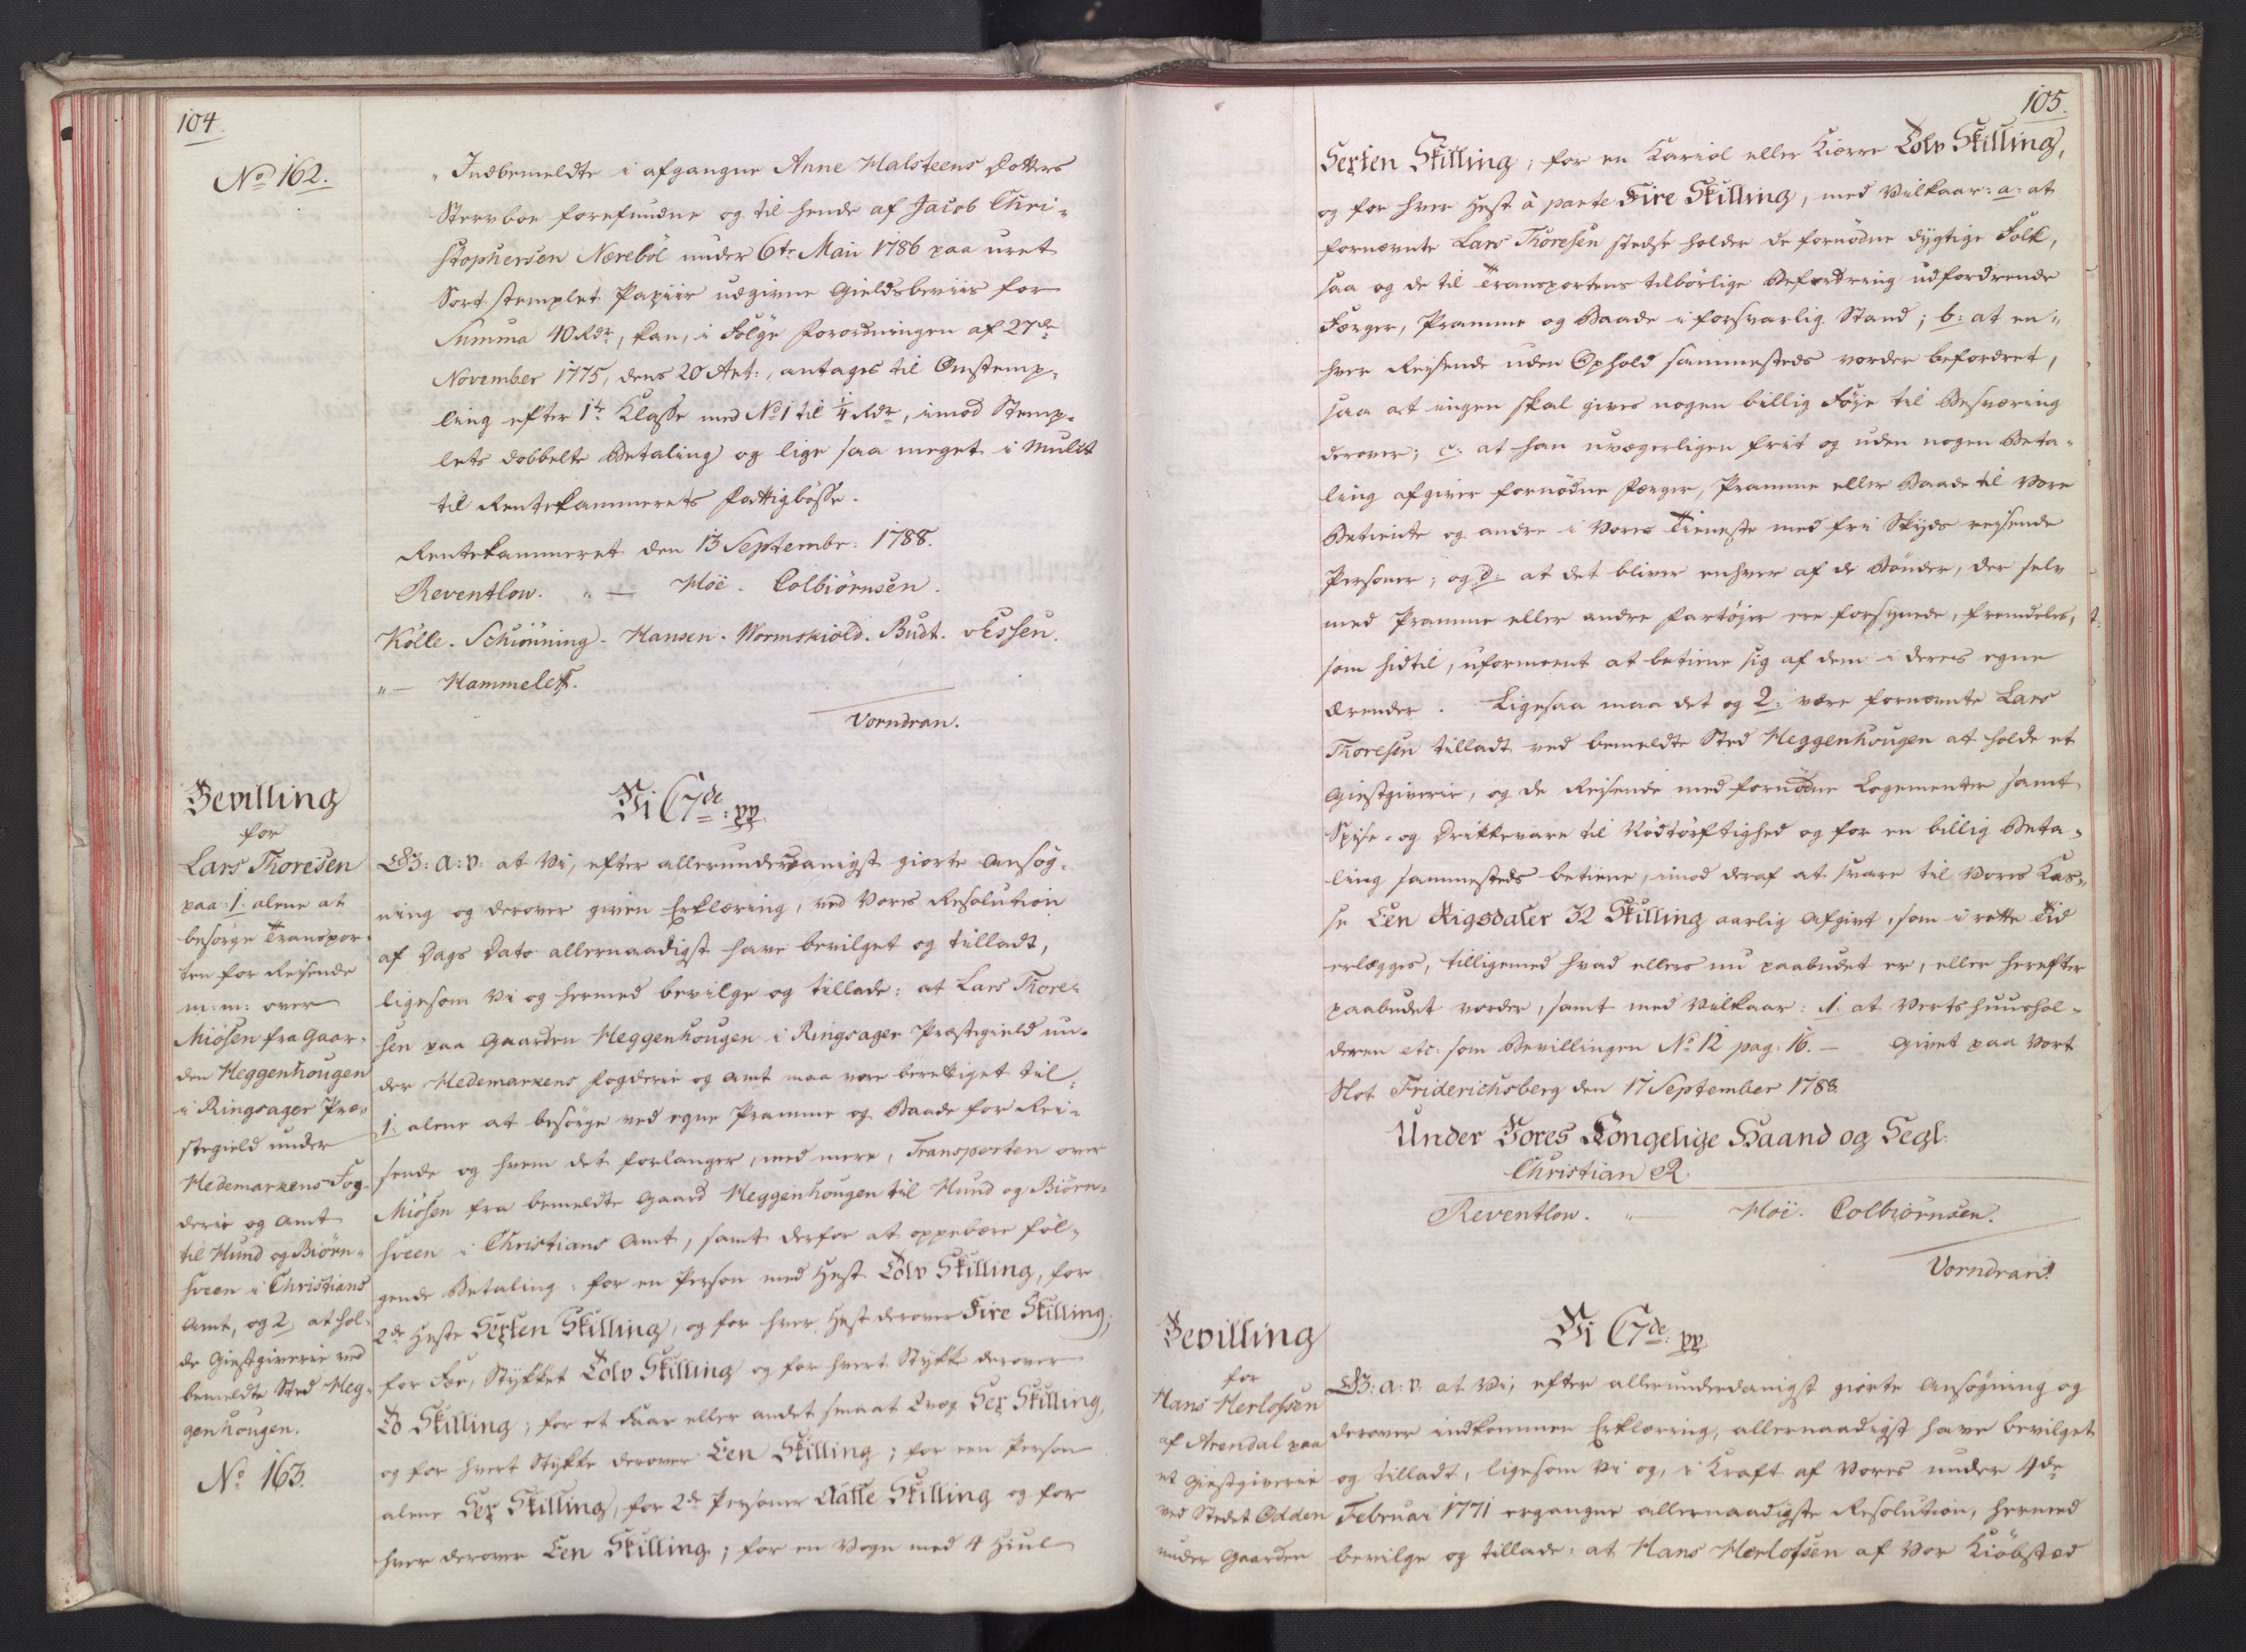 104.
No 162.
"Indbemeldte i afgangne Anne Halsteens Dotters
Sterboe forefundne og til hende af Jacob Chri-
stophersen Næreböl under 6te Maii 1786 paa uret
Sort stemplet Papiir udgivne Gieldsbeviis for
Summa 40 Rdr, kan, i Fölge Forordningen af 27de
November 1775, dens 20 Art:, antages til Omstemp-
ling efter 1te Klasse med No 1 til ¼ Rdr, imod Stemp-
lets dobbelte Betaling og lige saa meget i Mulct
til Rentekammerets Fattigbösse.
Rentekammeret den 13 Septembr: 1788.
Reventlow. " — Höé. Colbiörnsen.
Kölle. Schiönning. Hansen. Wormskiold. Budt. Essen.
" — Hammeleff.
Vorndran.
Bevilling
for
Lars Thoresen
paa: 1. alene at
besörge Transpor-
ten for Reisende
m: m: over
Miösen fra Gaar-
den Heggenhougen
i Ringsager Præ-
stegield under
Hedemarkens Fog-
derie og Amt
til Hund og Biörn-
sveen i Christians
Amt, og 2, at hol-
de Giestgiverie ved
bemeldte Sted Heg-
genhougen.
No 163.
Vi C 7de: pp.
G: A: V: at Vi, efter allerunderdanigst giorte Ansög-
ning og derover given Erklæring, ved Vores Resolution
af Dags Dato allernaadigst have bevilget og tilladt,
ligesom Vi og hermed bevilge og tillade: at Lars Thore-
sen paa Gaarden Heggenhougen i Ringsager Præstegield un-
der Hedemarkens Fogderie og Amt maa være berettiget til
1. alene at besörge ved egne Pramme og Baade for Rei-
sende og hvem det forlanger, med mere, Transporten over
Miösen fra bemeldte Gaard Heggenhougen til Hund og Biörn-
sveen i Christians Amt, samt derfor at oppebære föl-
gende Betaling: for en Person med Hest Tolv Skilling, for
2de Heste Sexten Skilling, og for hver Hest derover Fire Skilling;
for Fæe, Stykket Tolv Skilling og for hvert Stykke derover
To Skilling; for et Faar eller andet smaat Qvæg Sex Skilling,
og for hvert Stykke derover Een Skilling; for een Person
alene Sex Skilling, for 2de Personer Aatte Skilling og for
hver derover Een Skilling; for en Vogn med 4 Hiul
105.
Sexten Skilling; for en Kariol eller Kiærre Tolv Skilling,
og for hver Hest à parte Fire Skilling, med Vilkaar: a: at
fornævnte Lars Thoresen stedse holder de fornödne dygtige Folk,
saa og de til Transportens tilbörlige Befordring udfordrende
Færger, Pramme og Baade i forsvarlig Stand; b: at en-
hver Reisende uden Ophold sammesteds vorder befordret,
saa at ingen skal gives nogen billig Föje til Besværing
derover; c: at han uvægerligen frit og uden nogen Beta-
ling afgiver fornödne Færger, Pramme eller Baade til Vore
Betiente og andre i Vores Tieneste med fri Skyds reisende
Personer; og d: at det bliver enhver af de Bönder, der selv
med Pramme eller andre Fartöjer ere forsynede, fremdeles,
som hidtil, uformeent at betiene sig af dem i deres egne
Ærender. Ligesaa maa det og 2: være fornævnte Lars
Thoresen tilladt ved bemeldte Sted Heggenhougen at holde et
Giestgiverie, og de Reisende med fornödne Logementer samt
Spise- og Drikkevare til Nödtörftighed og for en billig Beta-
ling sammesteds betiene, imod deraf at svare til Vores Kas-
se Een Rigsdaler 32 Skilling aarlig Afgivt, som i rette Tid
erlægges, tilligemed hvad ellers nu paabudet er, eller herefter
paabudet vorder, samt med Vilkaar: 1. at Vertshuushol-
deren etc: som Bevillingen No 12 pag: 16. — Givet paa Vort
Slot Friderichsberg den 17 September 1788.
Under Vores Kongelige Haand og Segl.
Christian R.
Reventlow. " Höé. Colbiörnsen.
Vorndran.
Bevilling
for
Hans Herlofsen
af Arendal paa
et Giestgiverie
ved Stedet Odden
under Gaarden
Vi C 7de: pp.
G: A: V: at Vi, efter allerunderdanigst giorte Ansögning og
derover indkommen Erklæring, allernaadigst have bevilget
og tilladt, ligesom Vi og, i Kraft af Vores under 4de
Februar 1771 ergangne allernaadigste Resolution, hermed
bevilge og tillade: at Hans Herlofsen af Vor Kiöbstæd